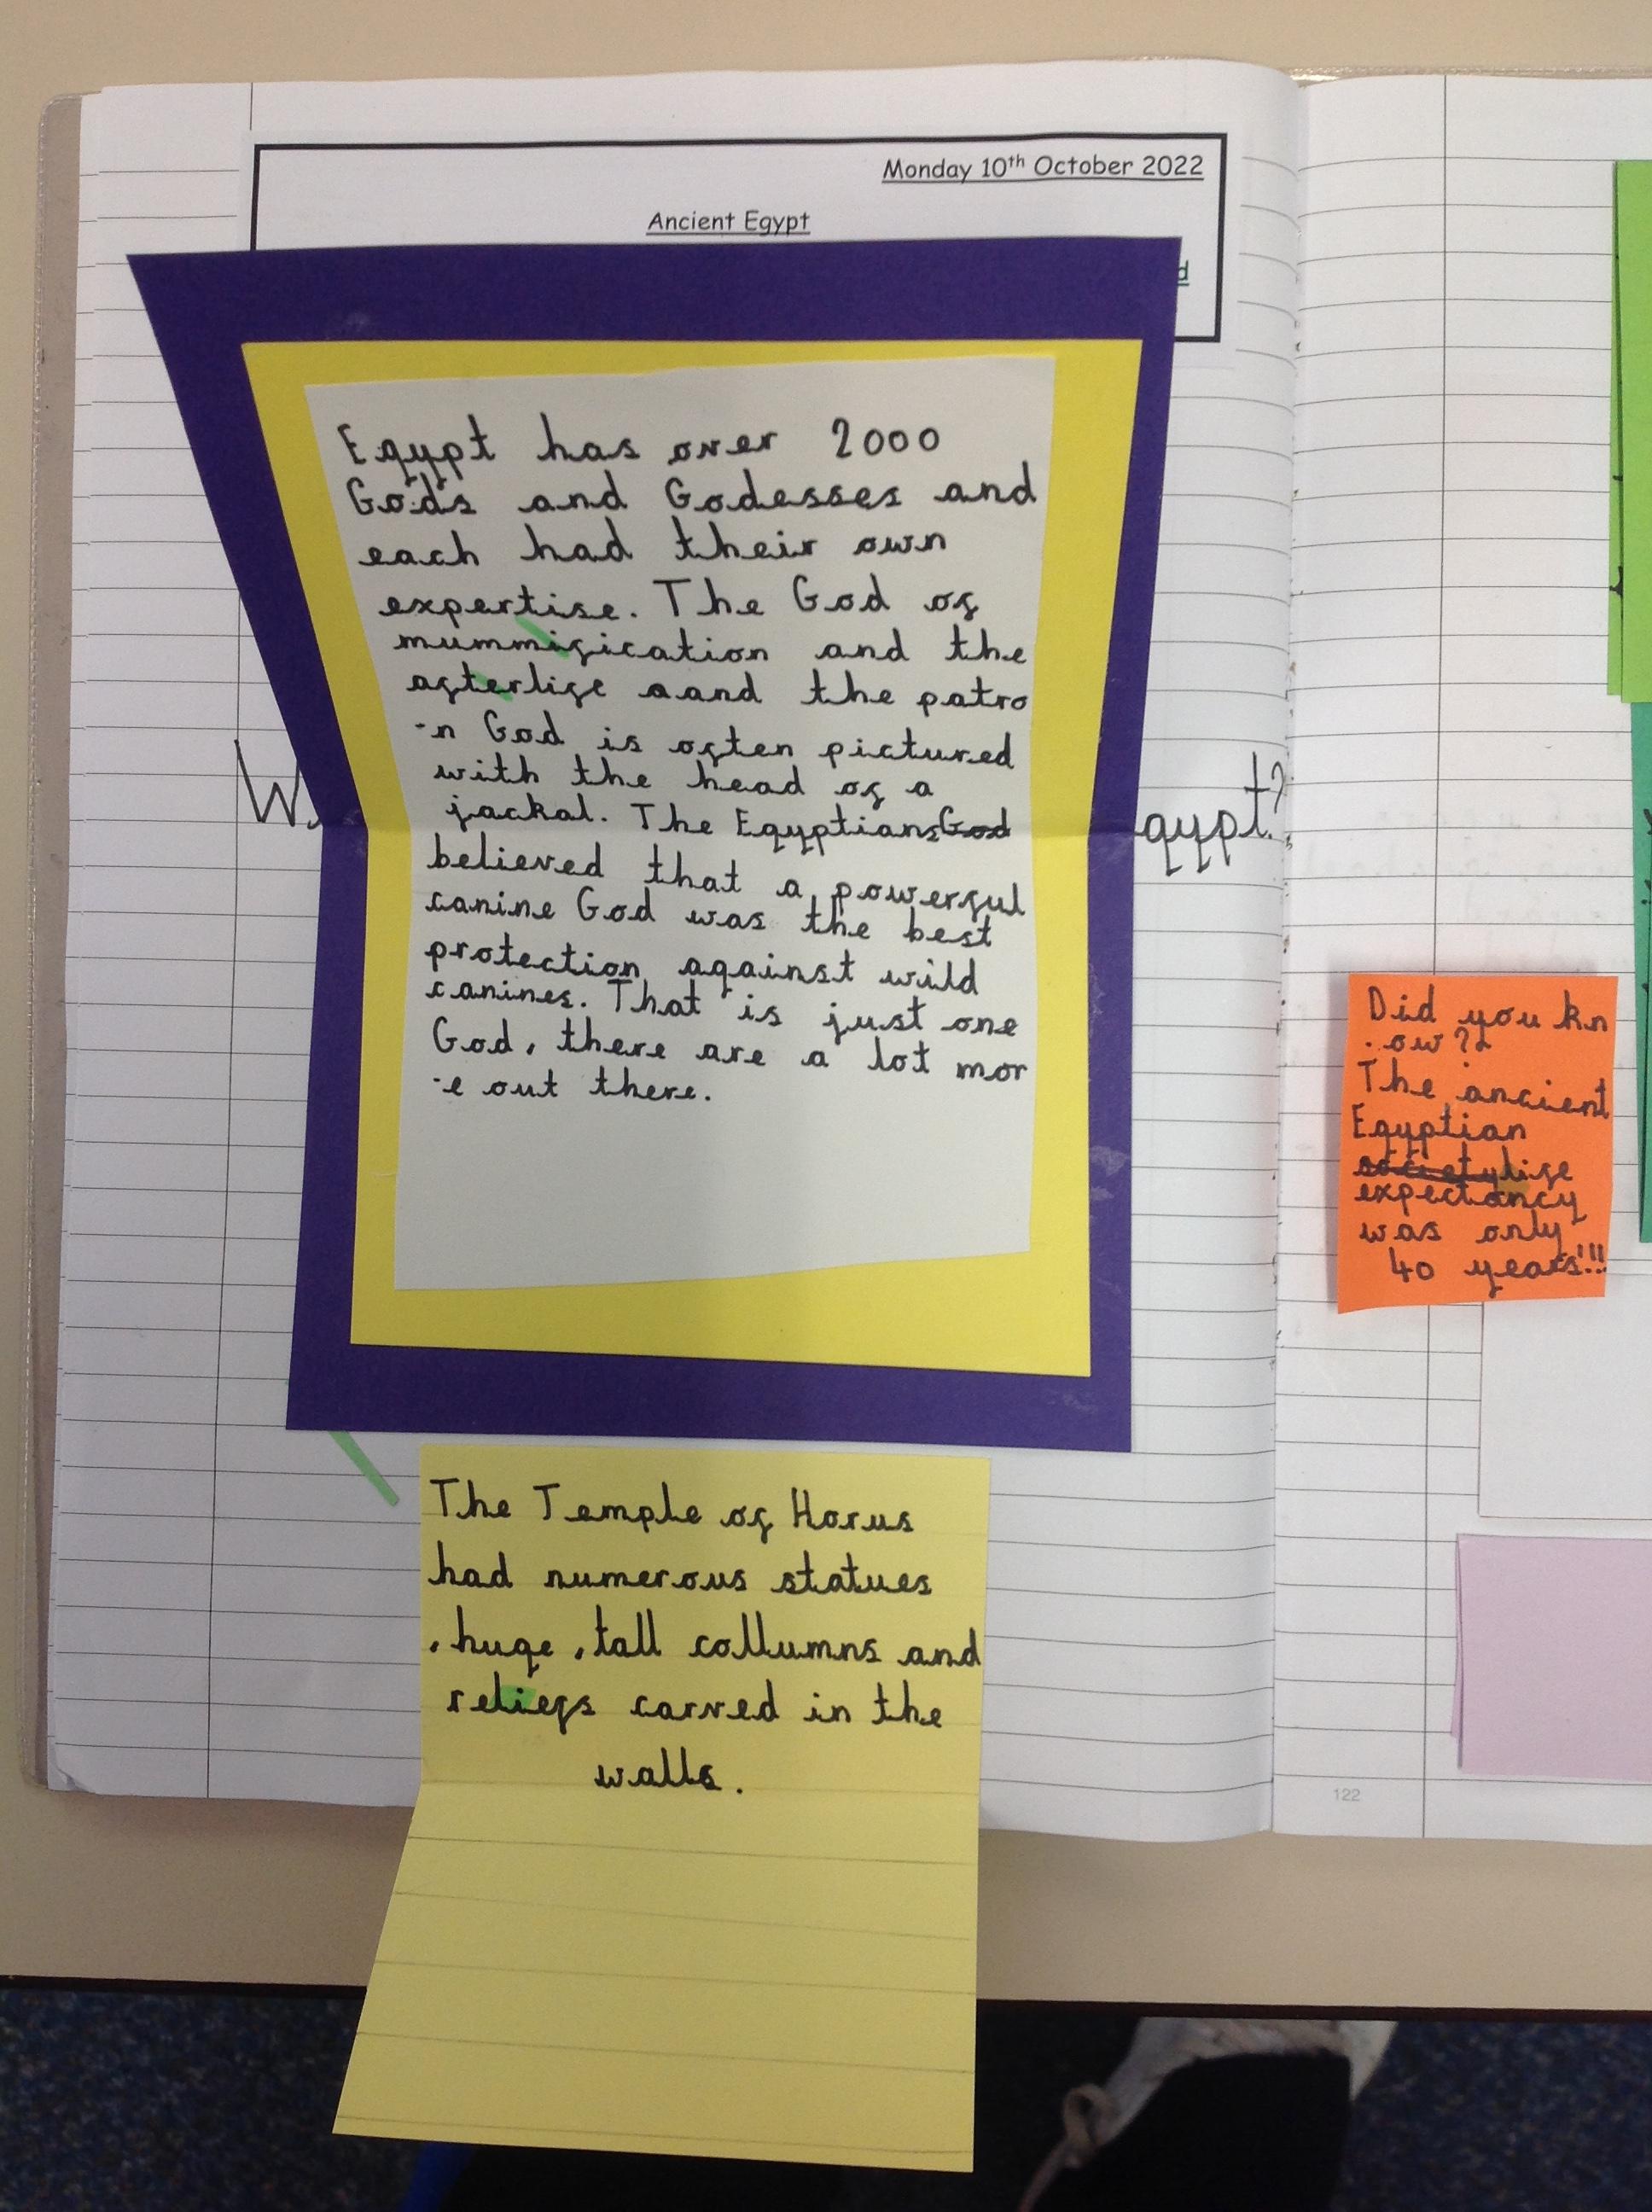 Monday 10th October 2022
Ancient Egypt
d
Egypt has over 2000
Gods and Godesses and
each had their own
expertise. The God of
mummification and the
afterlife aand the patro
-n God is often pictured
with the head of a
jackal. The Egyptians God
believed that a powerful
canine God was the best
protection against wild
canines. That is just one
God, there are a lot mor
-e out there.
W
gypt?
The Temple of Horus
had numerous statues
, huge , tall collumns and
reliefs carved in the
walls.
Did you kn
-ow??
The ancient
Egyptian
society life
expectancy
was only
40 years!!!
122